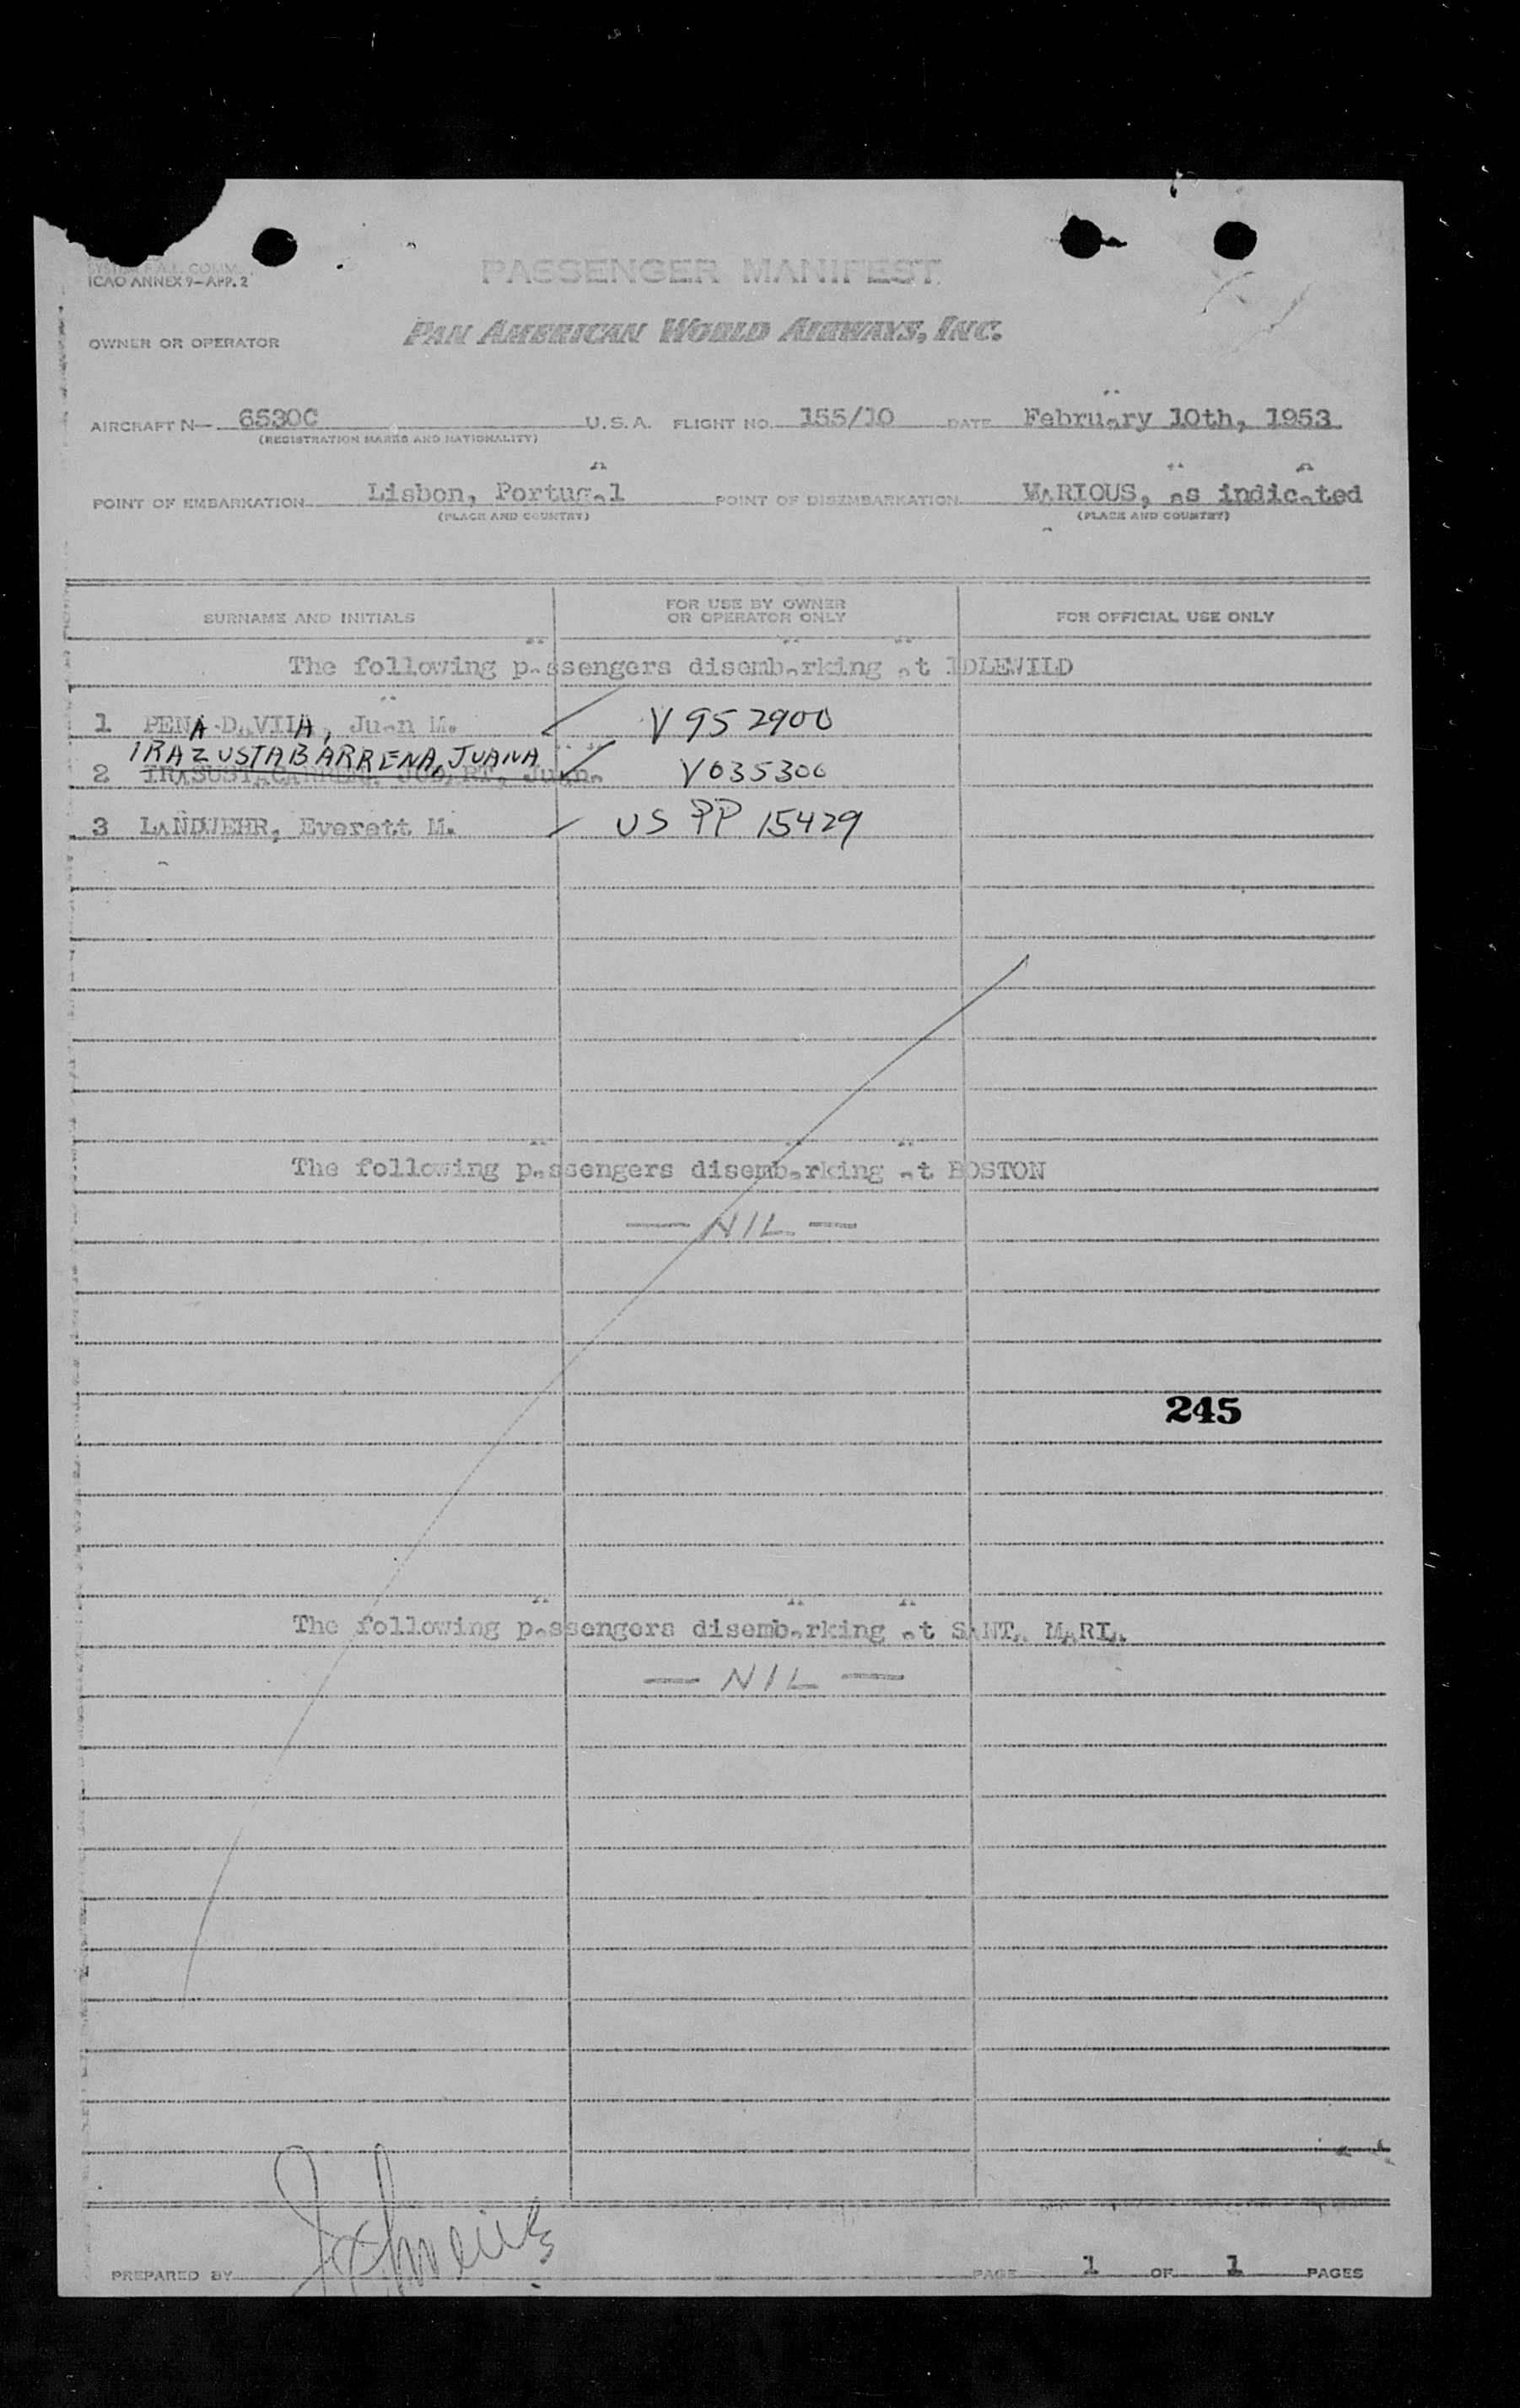 SYSTEM F.A.L. COMM.
ICAO ANNEX 9-APP. 2
PASSENGER MANIFEST
OWNER OR OPERATOR PAN AMERICAN WORLD AIRWAYS, INC.
AIRCRAFT N- 6530C U.S.A. FLIGHT NO. 155/10 DATE February 10th, 1953
(REGISTRATION MARKS AND NATIONALITY)
POINT OF EMBARKATION Lisbon, Portugal POINT OF DISEMBARKATION VARIOUS, as indicated
(PLACE AND COUNTRY) (PLACE AND COUNTRY)
SURNAME AND INITIALS FOR USE BY OWNER OR OPERATOR ONLY FOR OFFICIAL USE ONLY
The following passengers disembarking at IDLEWILD
1 PENA-DAVILA, Juan M. V 952900
IRAZUSTABARRENA, JUANA
2 V035300
3 LANDWEHR, Everett M. US PP 15429
The following passengers disembarking at BOSTON
— NIL —
245
The following passengers disembarking at SANTA MARIA
— NIL —
PREPARED BY PAGE 1 OF 1 PAGES